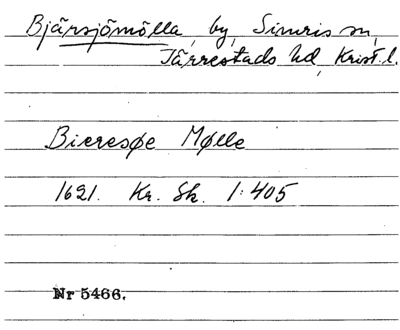 Bjärsjömölla, by, Simris sn,
Järrestads hd, Krist. l.
Bieresøe Mølle
1621. Kr. Sk. 1:405
Nr 5466.